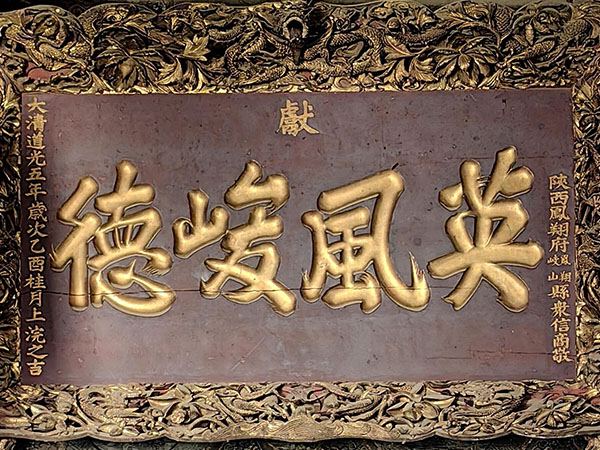 陝西鳳翔府鳳翔岐山縣衆信商敬
獻
英風峻德
大清道光五年歲次乙酉桂月上浣之吉